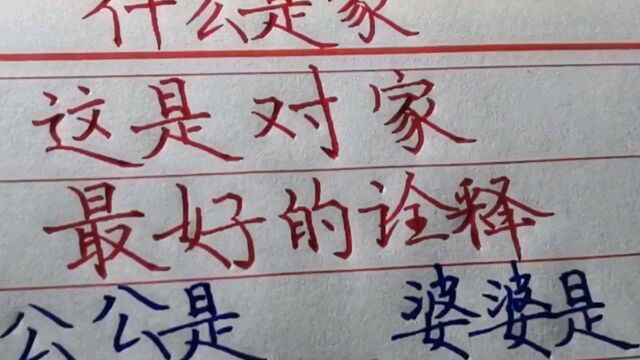 什么是家
这是对家
最好的诠释
公公是 婆婆是